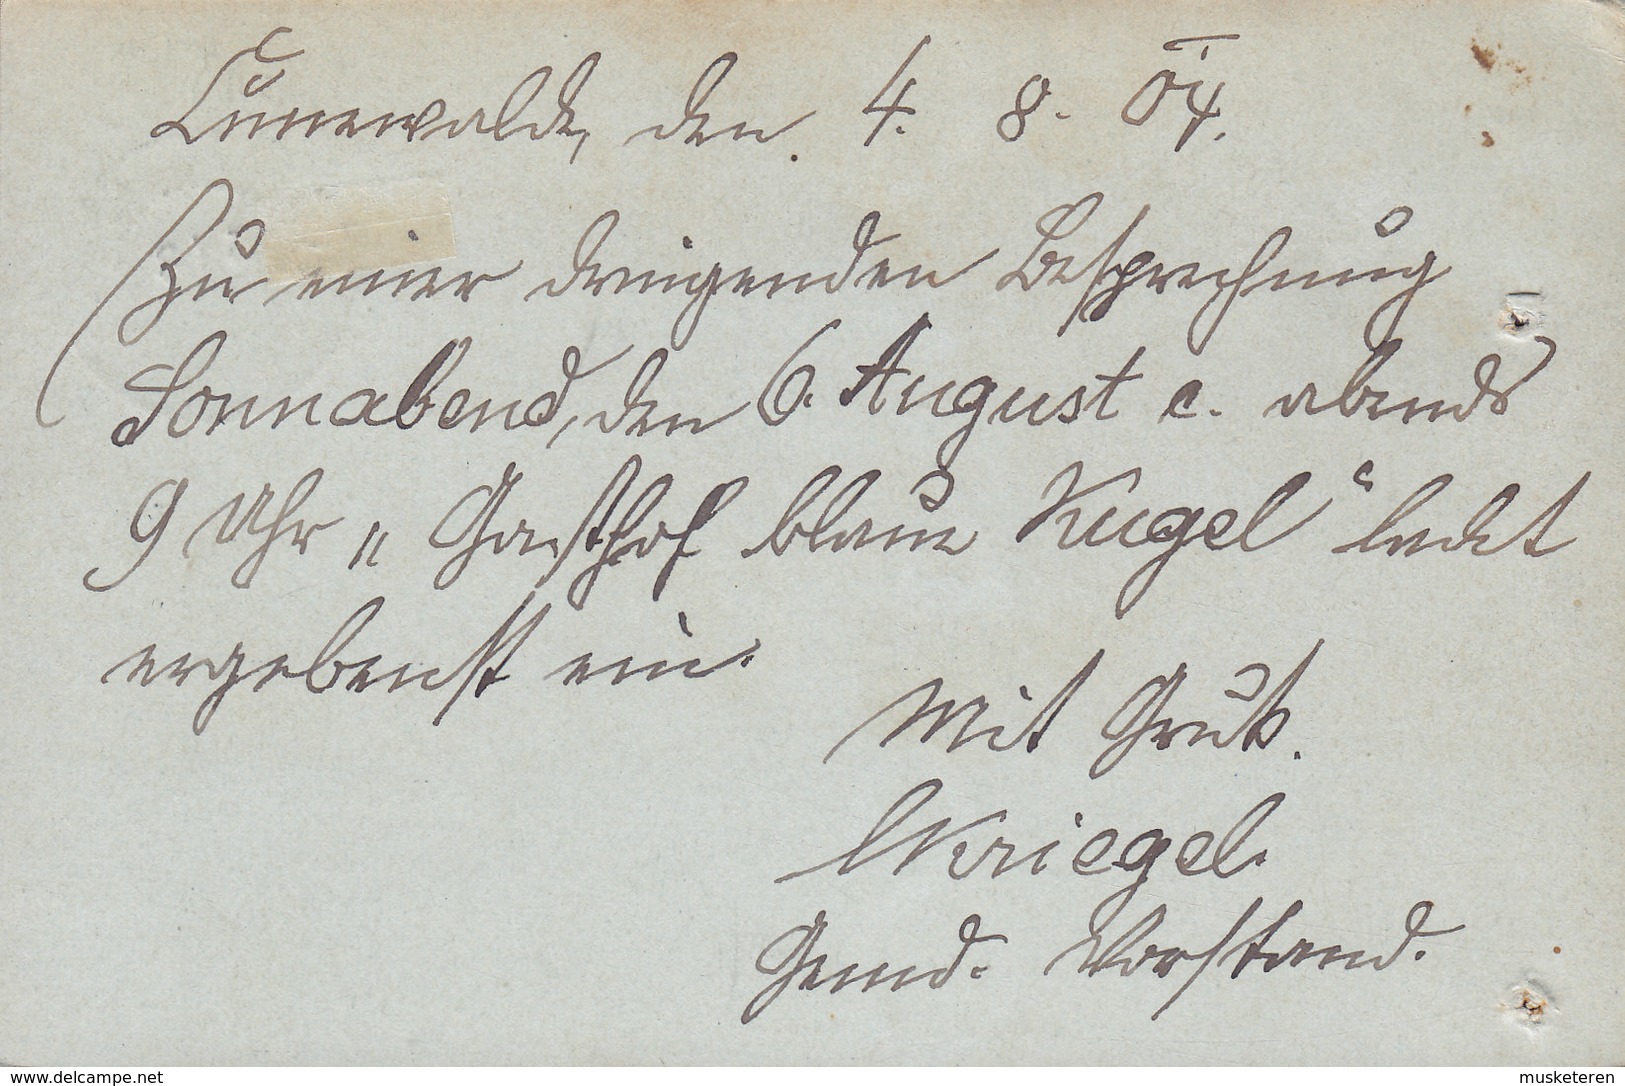 Cunewalde, den 4. 8. 04.
Zu einer dringenden Besprechung
Sonnabend, den 6. August c. abends
9 Uhr „Gasthof blaue Kugel“ ladet
ergebenst ein.
Mit Gruß.
Kriegel.
Gemd. Vorstand.
www.delcampe.net
musketeren